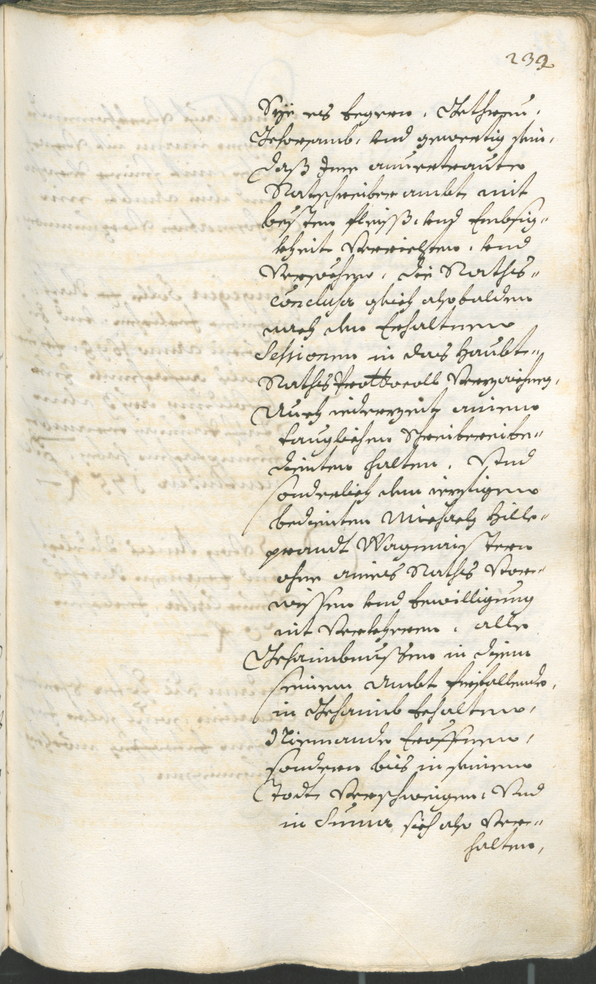 239
Sÿe es begern, Gethreu,
Gehorsamb, vnd gewertig sein,
daß Ime anuertraute
Ratschreiber ambt mit
besten fleiss, vnd Embsig-
kheit Verrichten, vnd
Versechen, die Raths-
Conclusa gleich alsbalden
nach den Gehaltenen
Sessionen in das Haubt-
Raths Prottocoll Verzaichnen,
Auch iederzeit ainen
tauglichen Schreiberei be-
dienten halten, Vnd
sonderlich den ieztigen
bedienten Michaeln Hille-
prandt Wagmaistern
ohne aines Raths Vor-
wissen vnd bewilligung
nit Verkheren, alle
Gehaimbnussen in disem
seinem Ambt fürfallende,
in Gehaimb behalten,
Niemande Eröffnen,
sondern bis in seinen
Todt Verschweigen, Vnd
in Suma sich also Ver-
halten,